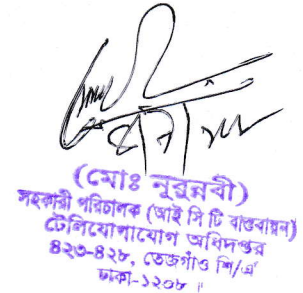 (মোঃ নুরুন্নবী)
সহকারী পরিচালক (আই সি টি বাস্তবায়ন)
টেলিযোগাযোগ অধিদপ্তর
৪২৩-৪২৮, তেজগাঁও শি/এ
ঢাকা-১২০৮।